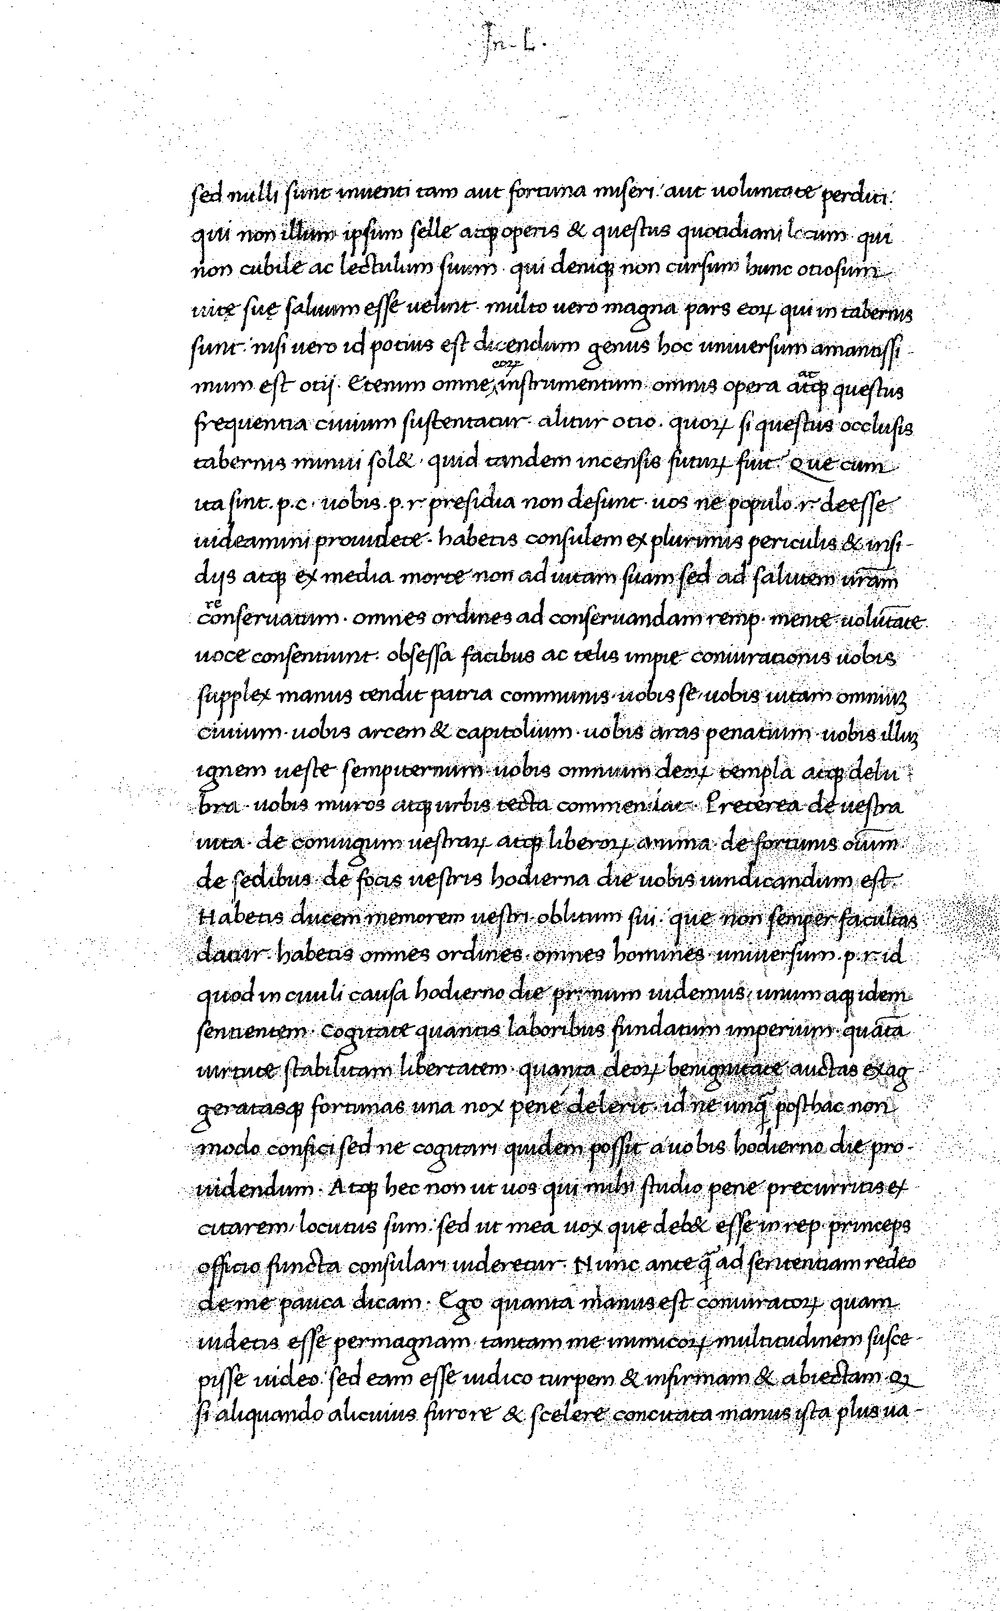 In. L.
sed nulli sunt inuenti tam aut fortuna miseri. aut uoluntate perditi.
qui non illum ipsum selle atqꝫ operis & questus quotidiani locum. qui
non cubile ac lectulum suum. qui deniqꝫ non cursum hunc otiosum
uitę suę saluum esse uelint. multo vero magna pars eoꝝ qui in tabernis
sunt. nisi vero id potius est dicendum genus hoc uniuersum amantissi-
mum est otij. Etenim omne eoꝝ instrumentum. omnis opera ac atqꝫ questus
frequentia ciuium sustentatur. alitur otio. quoꝝ si questus occlusis
tabernis minui sol&. quid tandem incensis futuꝝ fuit. Que cum
ita sint. p. c. uobis. p. r presidia non desunt. uos ne populo. r. deesse
uideamini prouidete. habetis consulem ex plurimis periculis & insi-
dijs atqꝫ ex media morte non ad uitam suam sed ad salutem ur̅am
re conseruatum. omnes ordines ad conseruandam remp. mente. uolūtate
uoce consentiunt. obsessa facibus ac telis impię coniurationis uobis
supplex manus tendit patria communis. uobis se. uobis uitam omniuꝫ
ciuium. uobis arcem & capitolium. uobis aras penatium. uobis illuꝫ
ignem ueste sempiternum. uobis omnium deoꝝ templa atqꝫ delu
bra. uobis muros atqꝫ urbis tecta commendat. Preterea de uestra
uita. de coniugum uestraꝝ atqꝫ liberoꝝ anima. de fortunis oīum.
de sedibus. de focis uestris hodierna die uobis iudicandum est.
Habetis ducem memorem uestri. oblitum sui. que non semper facultas
datur. habetis omnes ordines. omnes homines. uniuersum. p. r. id
quod in ciuili causa hodierno die primum uidemus, unum aqꝫ idem
sentientem. Cogitate quantis laboribus fundatum imperium. quāta
uirtute stabilitam libertatem. quanta deoꝝ benignitate auctas exag
geratasqꝫ fortunas una nox pene delerit. id ne unq̄ posthac non
modo confici sed ne cogitari quidem possit a uobis hodierno die pro-
uidendum. Atqꝫ hec non ut uos qui mihi studio pene precurritis ex
citarem, locutus sum. sed ut mea uox que deb& esse in rep. princeps
officio functa consulari uideretur. Nunc ante q̄ ad sententiam redeo
de me pauca dicam. Ego quanta manus est coniuratoꝝ quam
uidetis esse permagnam. tantam me inimicoꝝ multitudinem susce-
pisse uideo. sed eam esse iudico turpem & infirmam & abiectam. Qꝫ
si aliquando alicuius furore & scelere concitata manus ista plus ua-